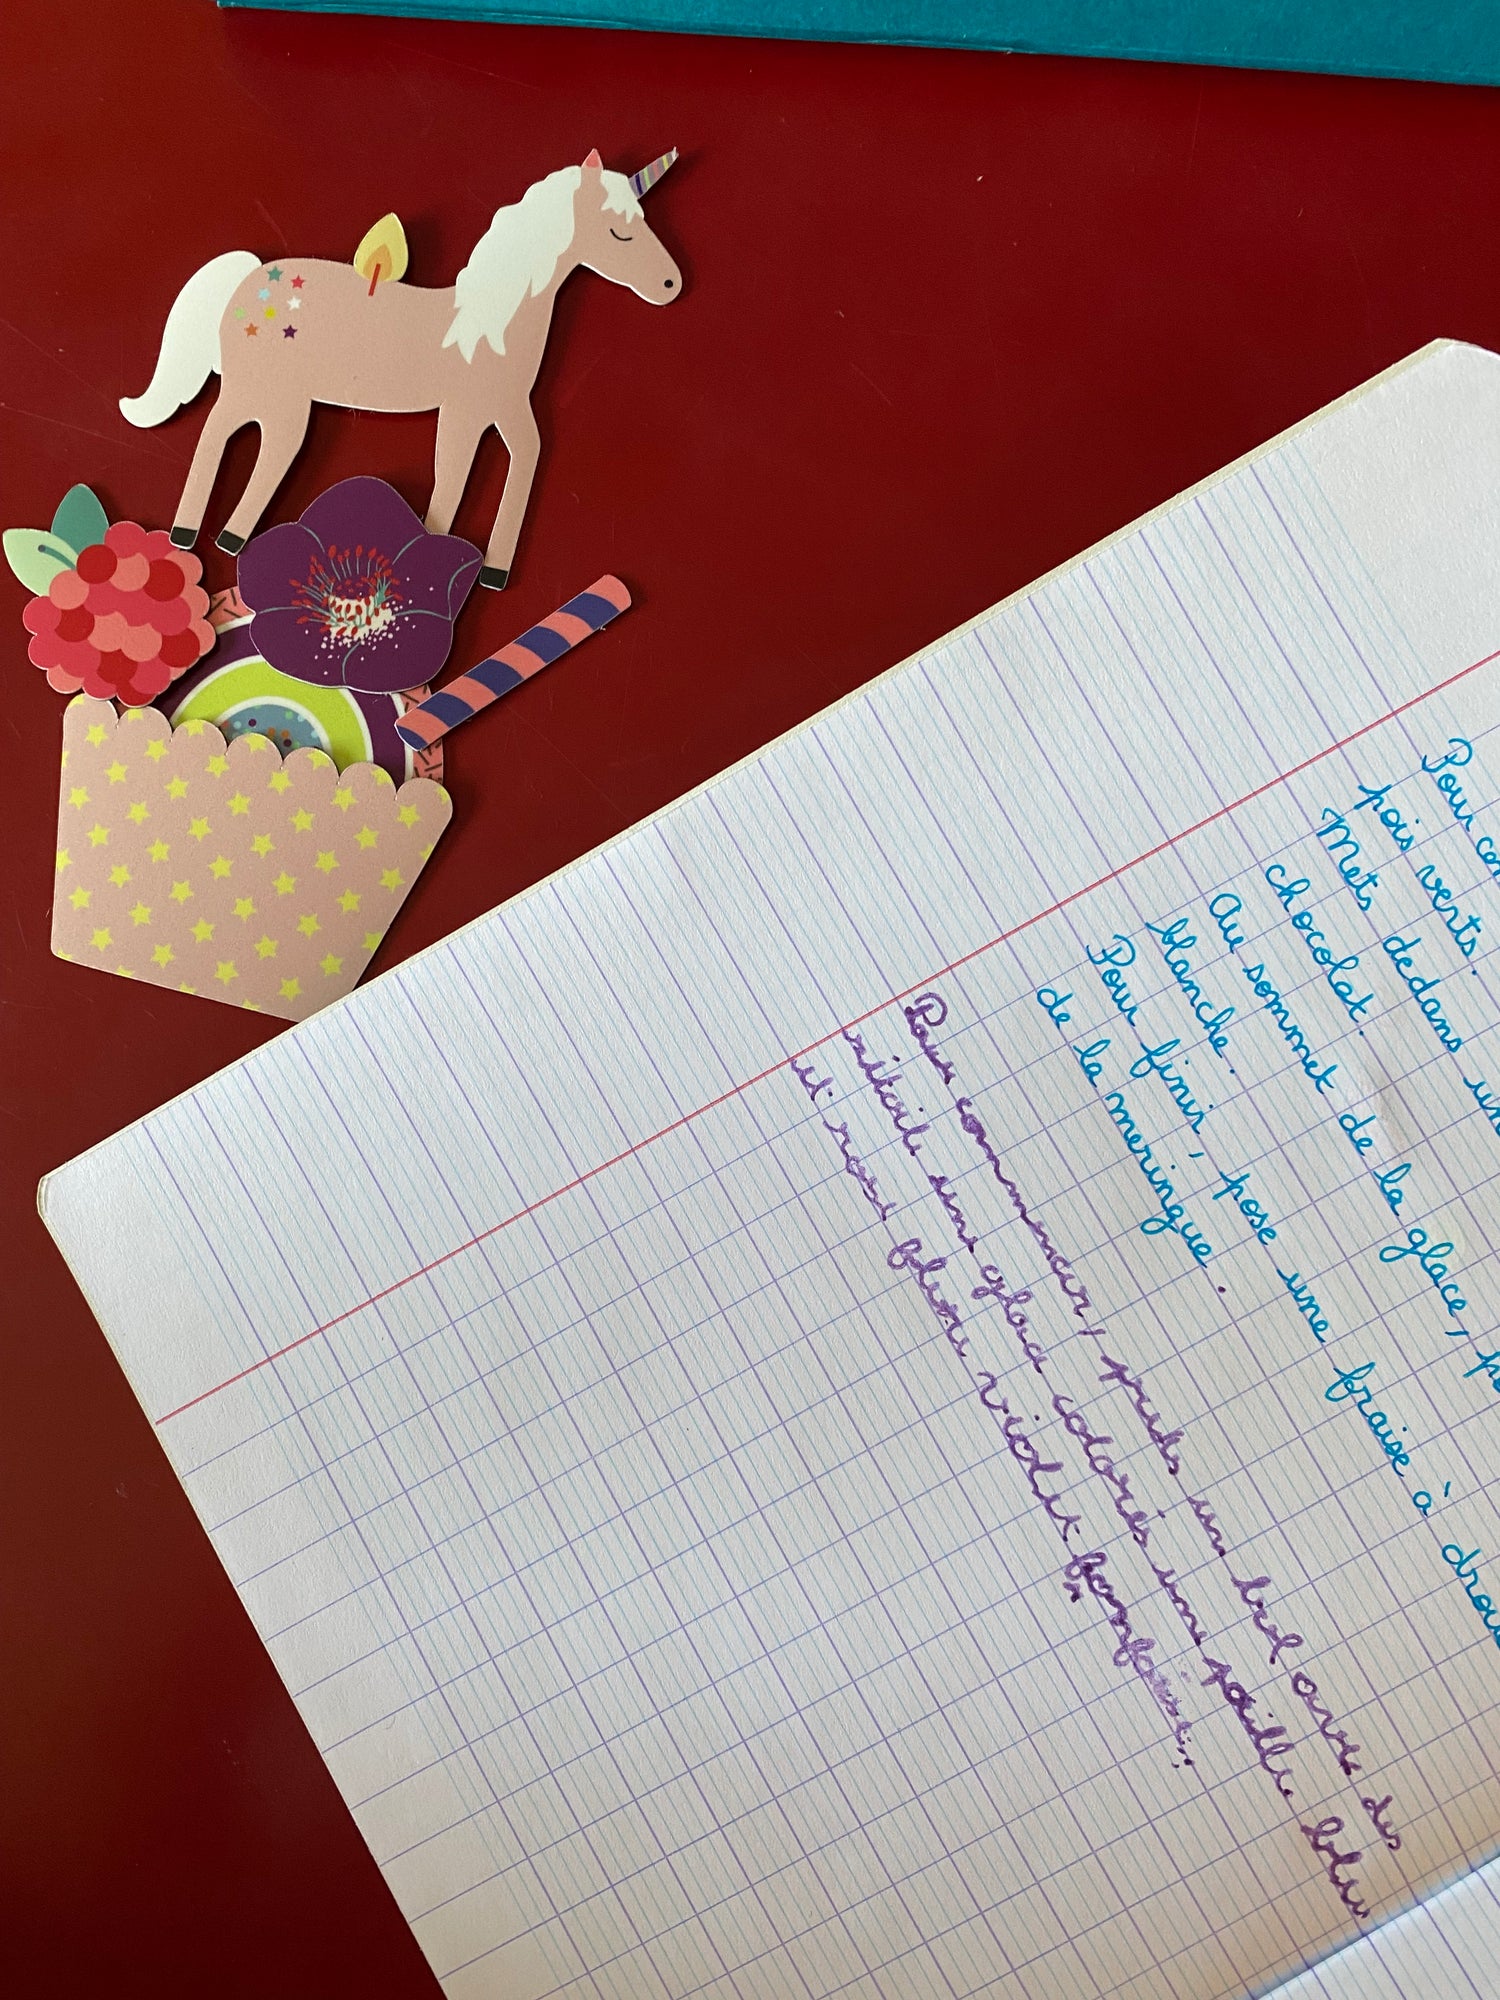 Pour
pois verts.
Mets dedans
chocolat.
Au sommet de la glace,
blanche.
Pour finir, pose une fraise à
de la meringue.
Pour commencer, prends un bol avec des
étoile une glace colorés une paille bleu
et rose fleur violet